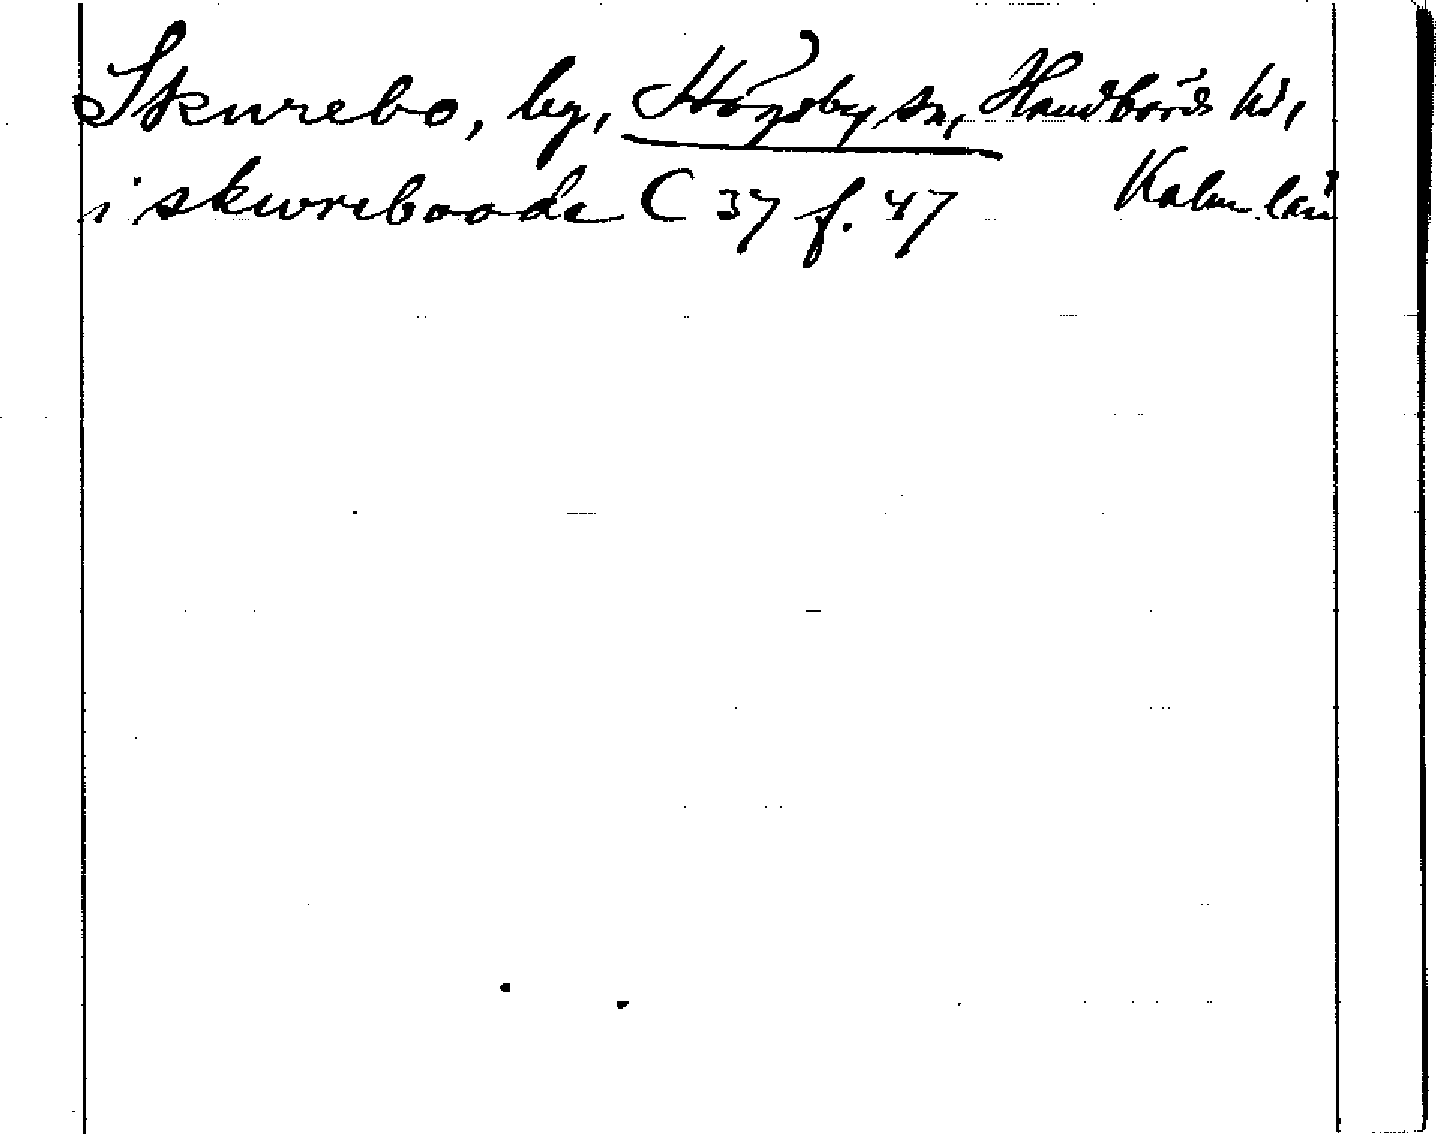 Skurebo, by, Högsby sn, Handbörds hd,
Kalm. län
i skwreboode C 37 f. 47